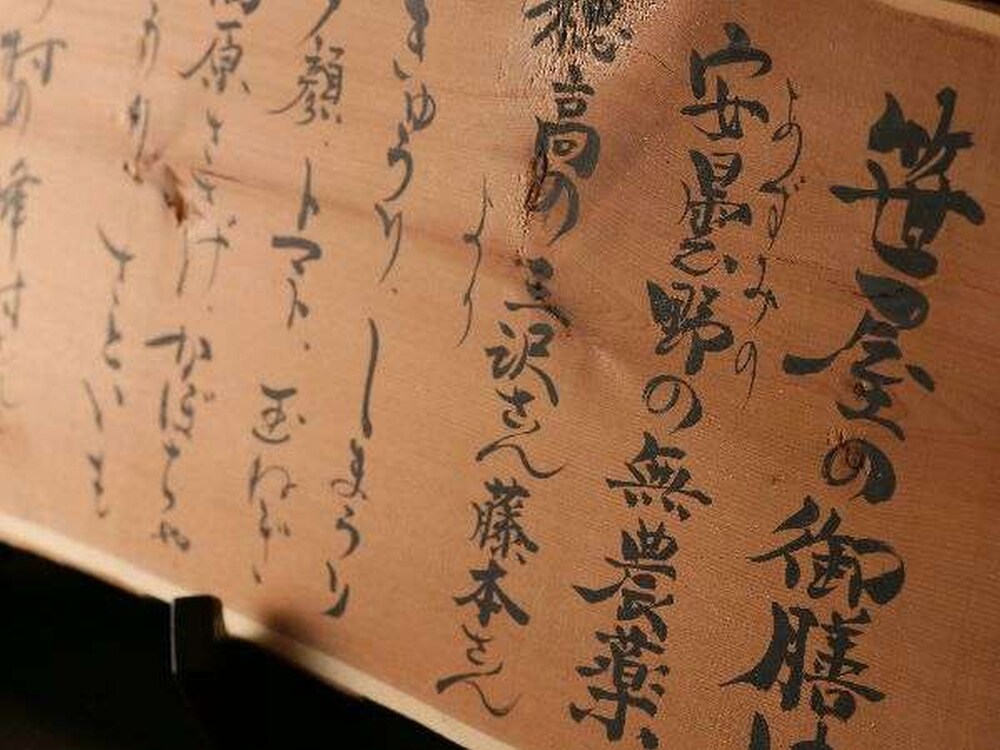 笹屋の御膳は
安曇野の無農薬
あずみの
穂高の三沢さん藤本さん
より
きゅうり、しまうり
夕顔、トマト、玉ねぎ、
原ささげ、かぼちゃ
さといも
村の